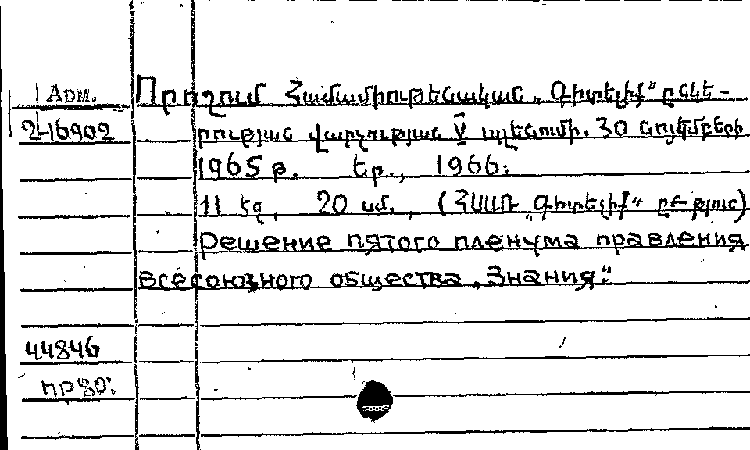 Арм.
2-16902
Որոշում Համամիութենական „Գիտելիք“ ընկե-
րության վարչության V պլենումի. 30 նոյեմբերի
1965 թ. Եր., 1966.
11 էջ, 20 սմ., (ՀՍՍՌ „Գիտելիք“ ընկ-թյուն)
Решение пятого пленума правления
всесоюзного общества „Знания“.
44846
пр80.